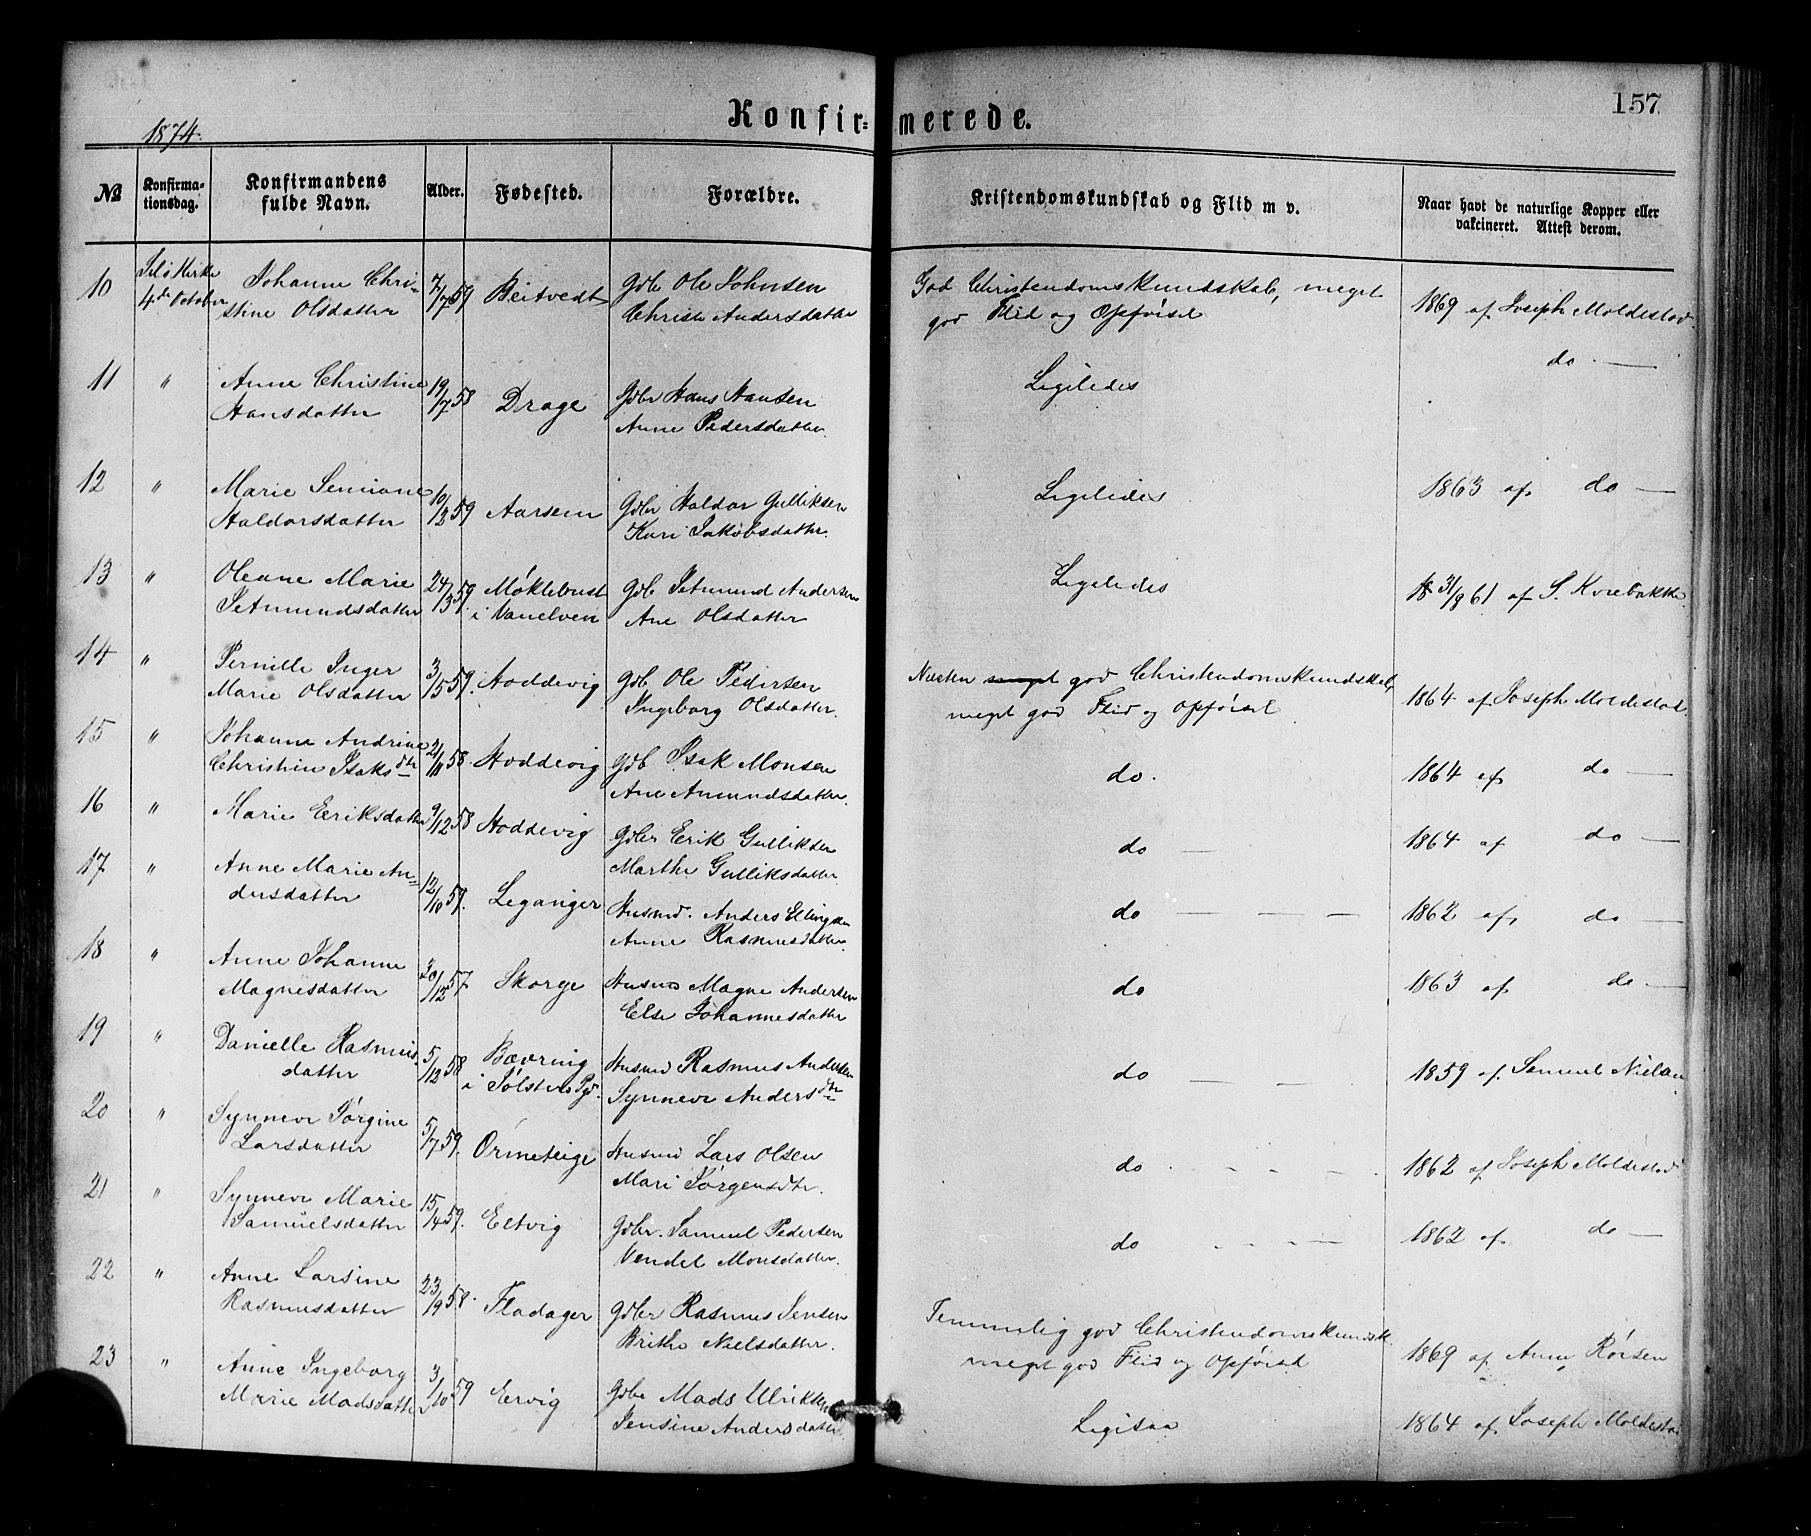 157
1874.
Konfir= merede.
No
Konfirma-
tionsdag.
Konfirmandens
fulde Navn.
Alder.
Fødested.
Forældre.
Kristendomskundskab og Flid m v.
Naar havt de naturlige Kopper eller
vakcineret. Attest derom.
10 Selø Kirke Johanne Chri- 7/7 59 Beitvedt Gdb Ole Johnsen God Christendomskundskab, meget 1869 af Joseph Moldestad
4de October stine Olsdatter Christi Andersdatter god Flid og Opførsel
11 " Anne Christine 19/7 58 Drage Gdbr Hans Hansen Ligeledes do —
Hansdatter Anne Pedersdatter.
12 " Marie Semiane 10/12 59 Aarsem Gdbr Haldor Gulliksen Ligeledes 1863 af do —
Haldorsdatter Kari Jakobsdatter.
13 " Oleane Marie 24/3 59. Møklebust Gdb Setmund Andersen Ligeledes 31/8 61 af S. Kvebakke.
Setmundsdatter i Vanelven Ane Olsdatter
14 " Pernille Inger 3/5 59. Hoddevig Gdb Ole Pedersen Næsten meget god Christendomskundskab,
Marie Olsdatter Ingeborg Olsdatter. meget god Flid og Opførsel 1864 af Joseph Moldestad.
15 " Johanne Andrine 2/11 58. Hoddevig Gdb Isak Monsen do. 1864 af do —
Christin Isaksdtr Ane Amundsdatter.
16 " Marie Eriksdatter 9/12 58 Hoddevig Gdbr Erik Gulliksen do — 1864 af do —
Marthe Gulliksdatter.
17 " Anne Marie An= 12/10 59. Leganger Husmd. Anders Ellingsen do — — — 1862 af do —
dersdatter Anne Rasmusdatter.
18 " Anne Johanne 30/12 57 Skorge Husmd Magne Andersen do 1863 af do —
Magnesdatter Else Johannesdatter
19 " Danielle Rasmus- 5/12 58 Bævring Husmd Rasmus Andersen do — — 1859 af Samuel Nielsen
datter i Jølsters Pgd. Synneve Andersdtr
20 " Synneve Jørgine 5/7 59. Ormeteige Husmd Lars Olsen do 1862 af Joseph Moldestad
Larsdatter Mari Jørgensdtr.
21 " Synneve Marie 15/4 59. Eltvig Gdbr. Samuel Pedersen do 1862 af do —
Samuelsdatter Vendel Monsdatter.
22 " Anne Larsine 23/9 58. Fladager Gdbr Rasmus Jensen Temmelig god Christendomskundsk.
Rasmusdatter Brithe Nielsdatter. meget god Flid og Opførsel 1869 af Anne Rørsen
23 " Anne Ingeborg 3/10 59 Ervig Gdbr Mads Ulriksen Ligesaa 1864 af Joseph Moldestad
Marie Madsdatter Jensine Andersdatter